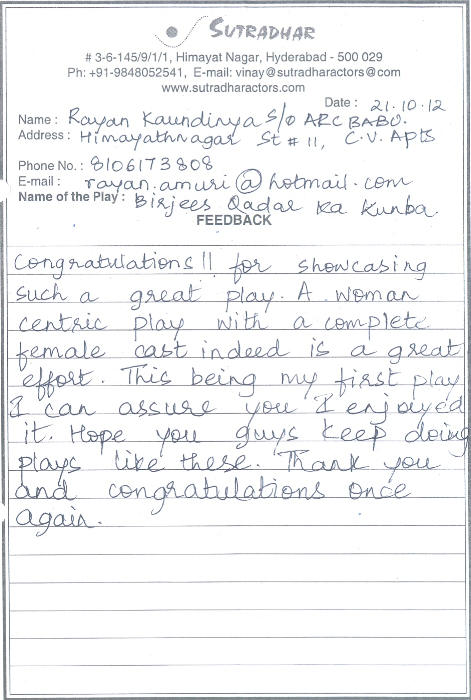 SUTRADHAR
# 3-6-145/9/1/1, Himayat Nagar, Hyderabad - 500 029
Ph: +91-9848052541, E-mail: vinay@sutradharactors@com
www.sutradharactors.com
Date : 21.10.12
Name : Rayan Kaundinya S/O ARC BABU.
Address : Himayathnagar St # 11, C.V. Apts
Phone No. : 8106173808
E-mail : rayan.amuri@hotmail.com
Name of the Play : Birjees Qadar Ka Kunba.
FEEDBACK
Congratulations!! for showcasing
such a great play. A woman
centric play with a complete
female cast indeed is a great
effort. This being my first play
I can assure you I enjoyed
it. Hope you guys keep doing
plays like these. Thank you
and congratulations once
again.